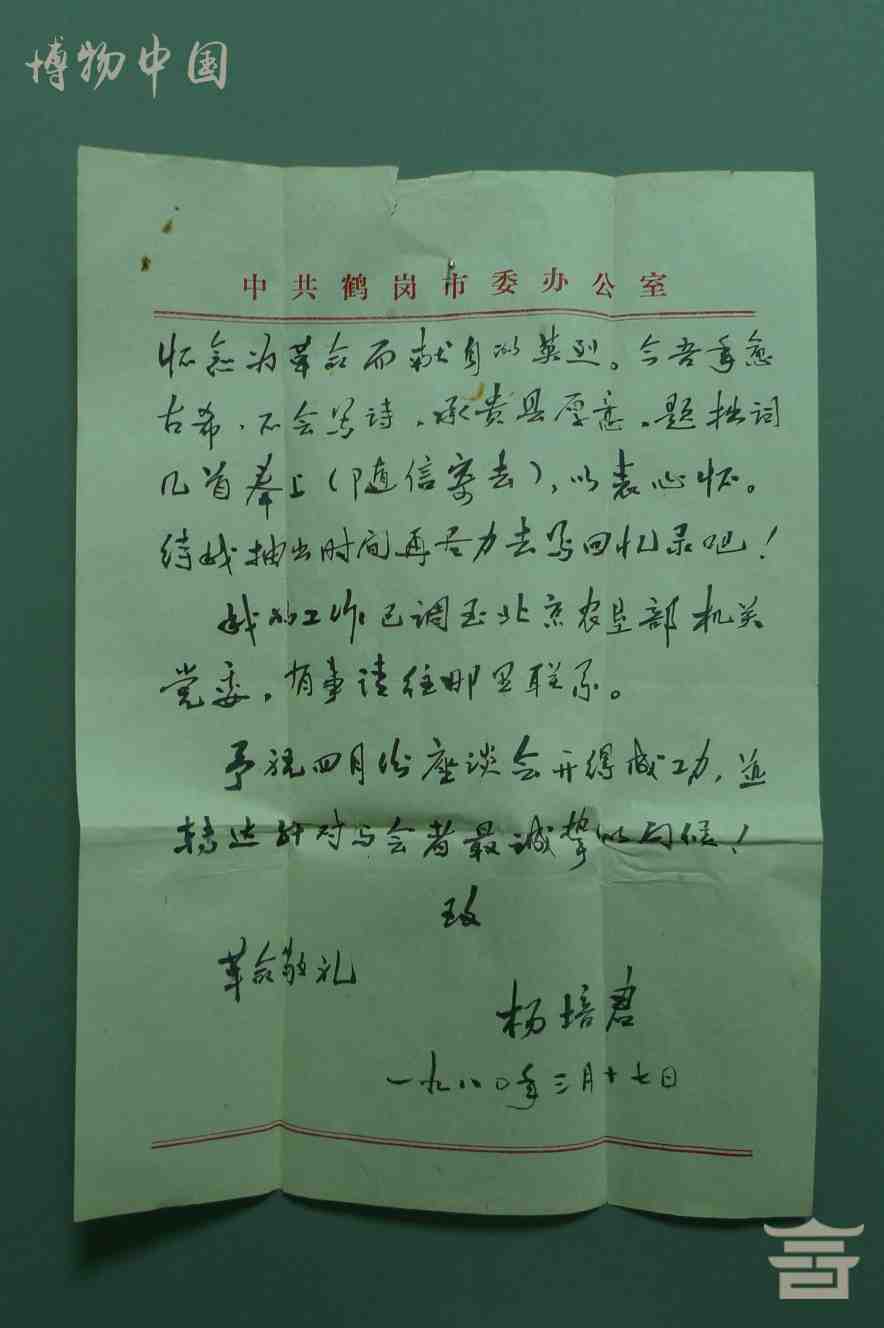 博物中国
中共鹤岗市委办公室
怀念为革命而献身的英烈。今吾年愈
古希，不会写诗，承贵县厚意，题拙词
几首奉上（随信寄去），以表心怀。
待我抽出时间再尽力去写回忆录吧！
我的工作已调至北京农垦部机关
党委，有事请往那里联系。
予祝四月份座谈会开得成功，并
转达我对与会者最诚挚的问候！
致
革命敬礼
杨培君
一九八〇年三月十七日